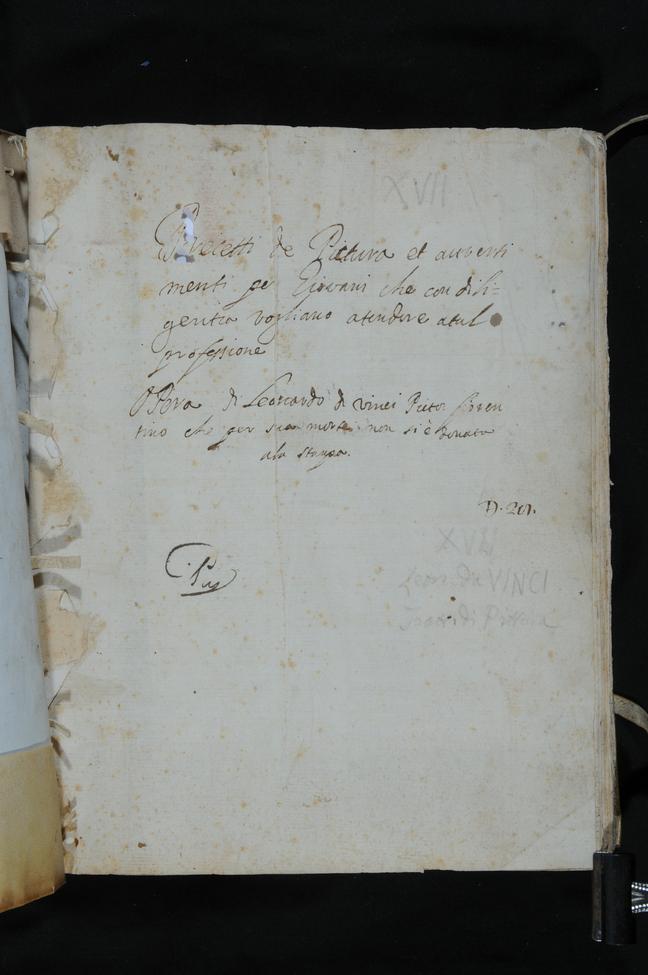 XVII
Precetti de Pictura et auverti
menti per Giovani che con dili=
gentia vogliano atendere a tal
professione
Opera di Leonardo di vinci Pictor fioren
tino che per sua morte non si è donata
ala stampa.
D. 201.
XVII
Leonardu VINCI
di Pittura